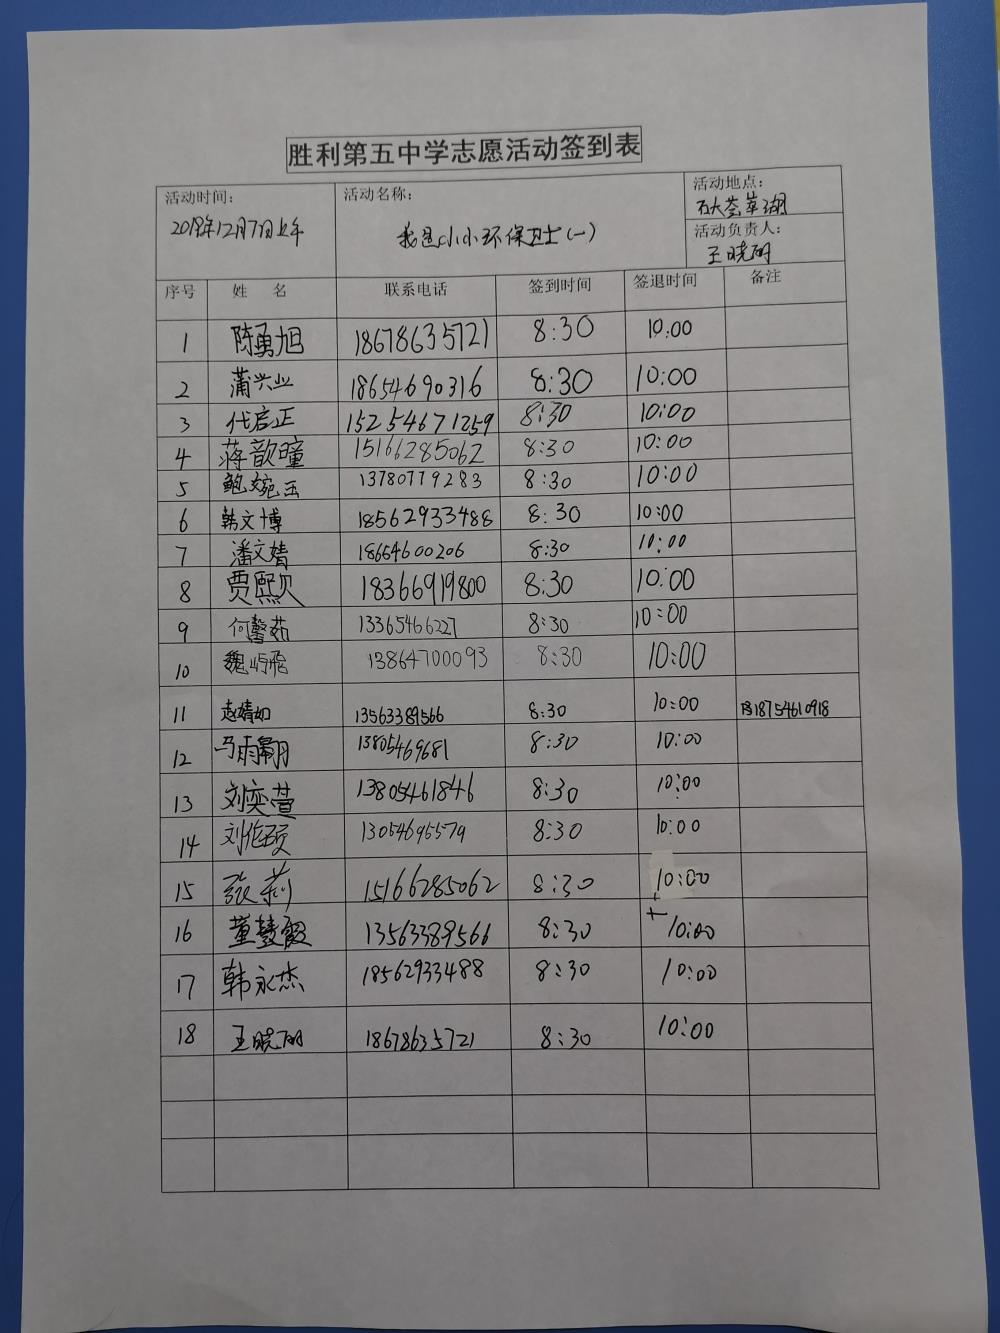 胜利第五中学志愿活动签到表
活动时间: 活动名称: 活动地点:
2019年12月7日上午 我是小小环保卫士(一) 石大荟萃湖
活动负责人:
王晓丽
序号 姓名 联系电话 签到时间 签退时间 备注
1 陈勇旭 18678635721 8:30 10:00
2 蒲兴业 18654690316 8:30 10:00
3 代启正 15254671259 8:30 10:00
4 蒋歆曈 15166285062 8:30 10:00
5 鲍婉玉 13780779283 8:30 10:00
6 韩文博 18562933488 8:30 10:00
7 潘文婧 18654600206 8:30 10:00
8 贾熙 18366919800 8:30 10:00
9 何馨茹 13365466227 8:30 10:00
10 魏屿飛 13864700093 8:30 10:00
11 赵婧如 13563389566 8:30 10:00 18754610918
12 马雨翮 13805469681 8:30 10:00
13 刘奕萱 13805461846 8:30 10:00
14 刘作硕 13054695579 8:30 10:00
15 张莉 15166285062 8:30 10:00
16 董慧霞 13563389566 8:30 10:00
17 韩永杰 18562933488 8:30 10:00
18 王晓丽 18678635721 8:30 10:00